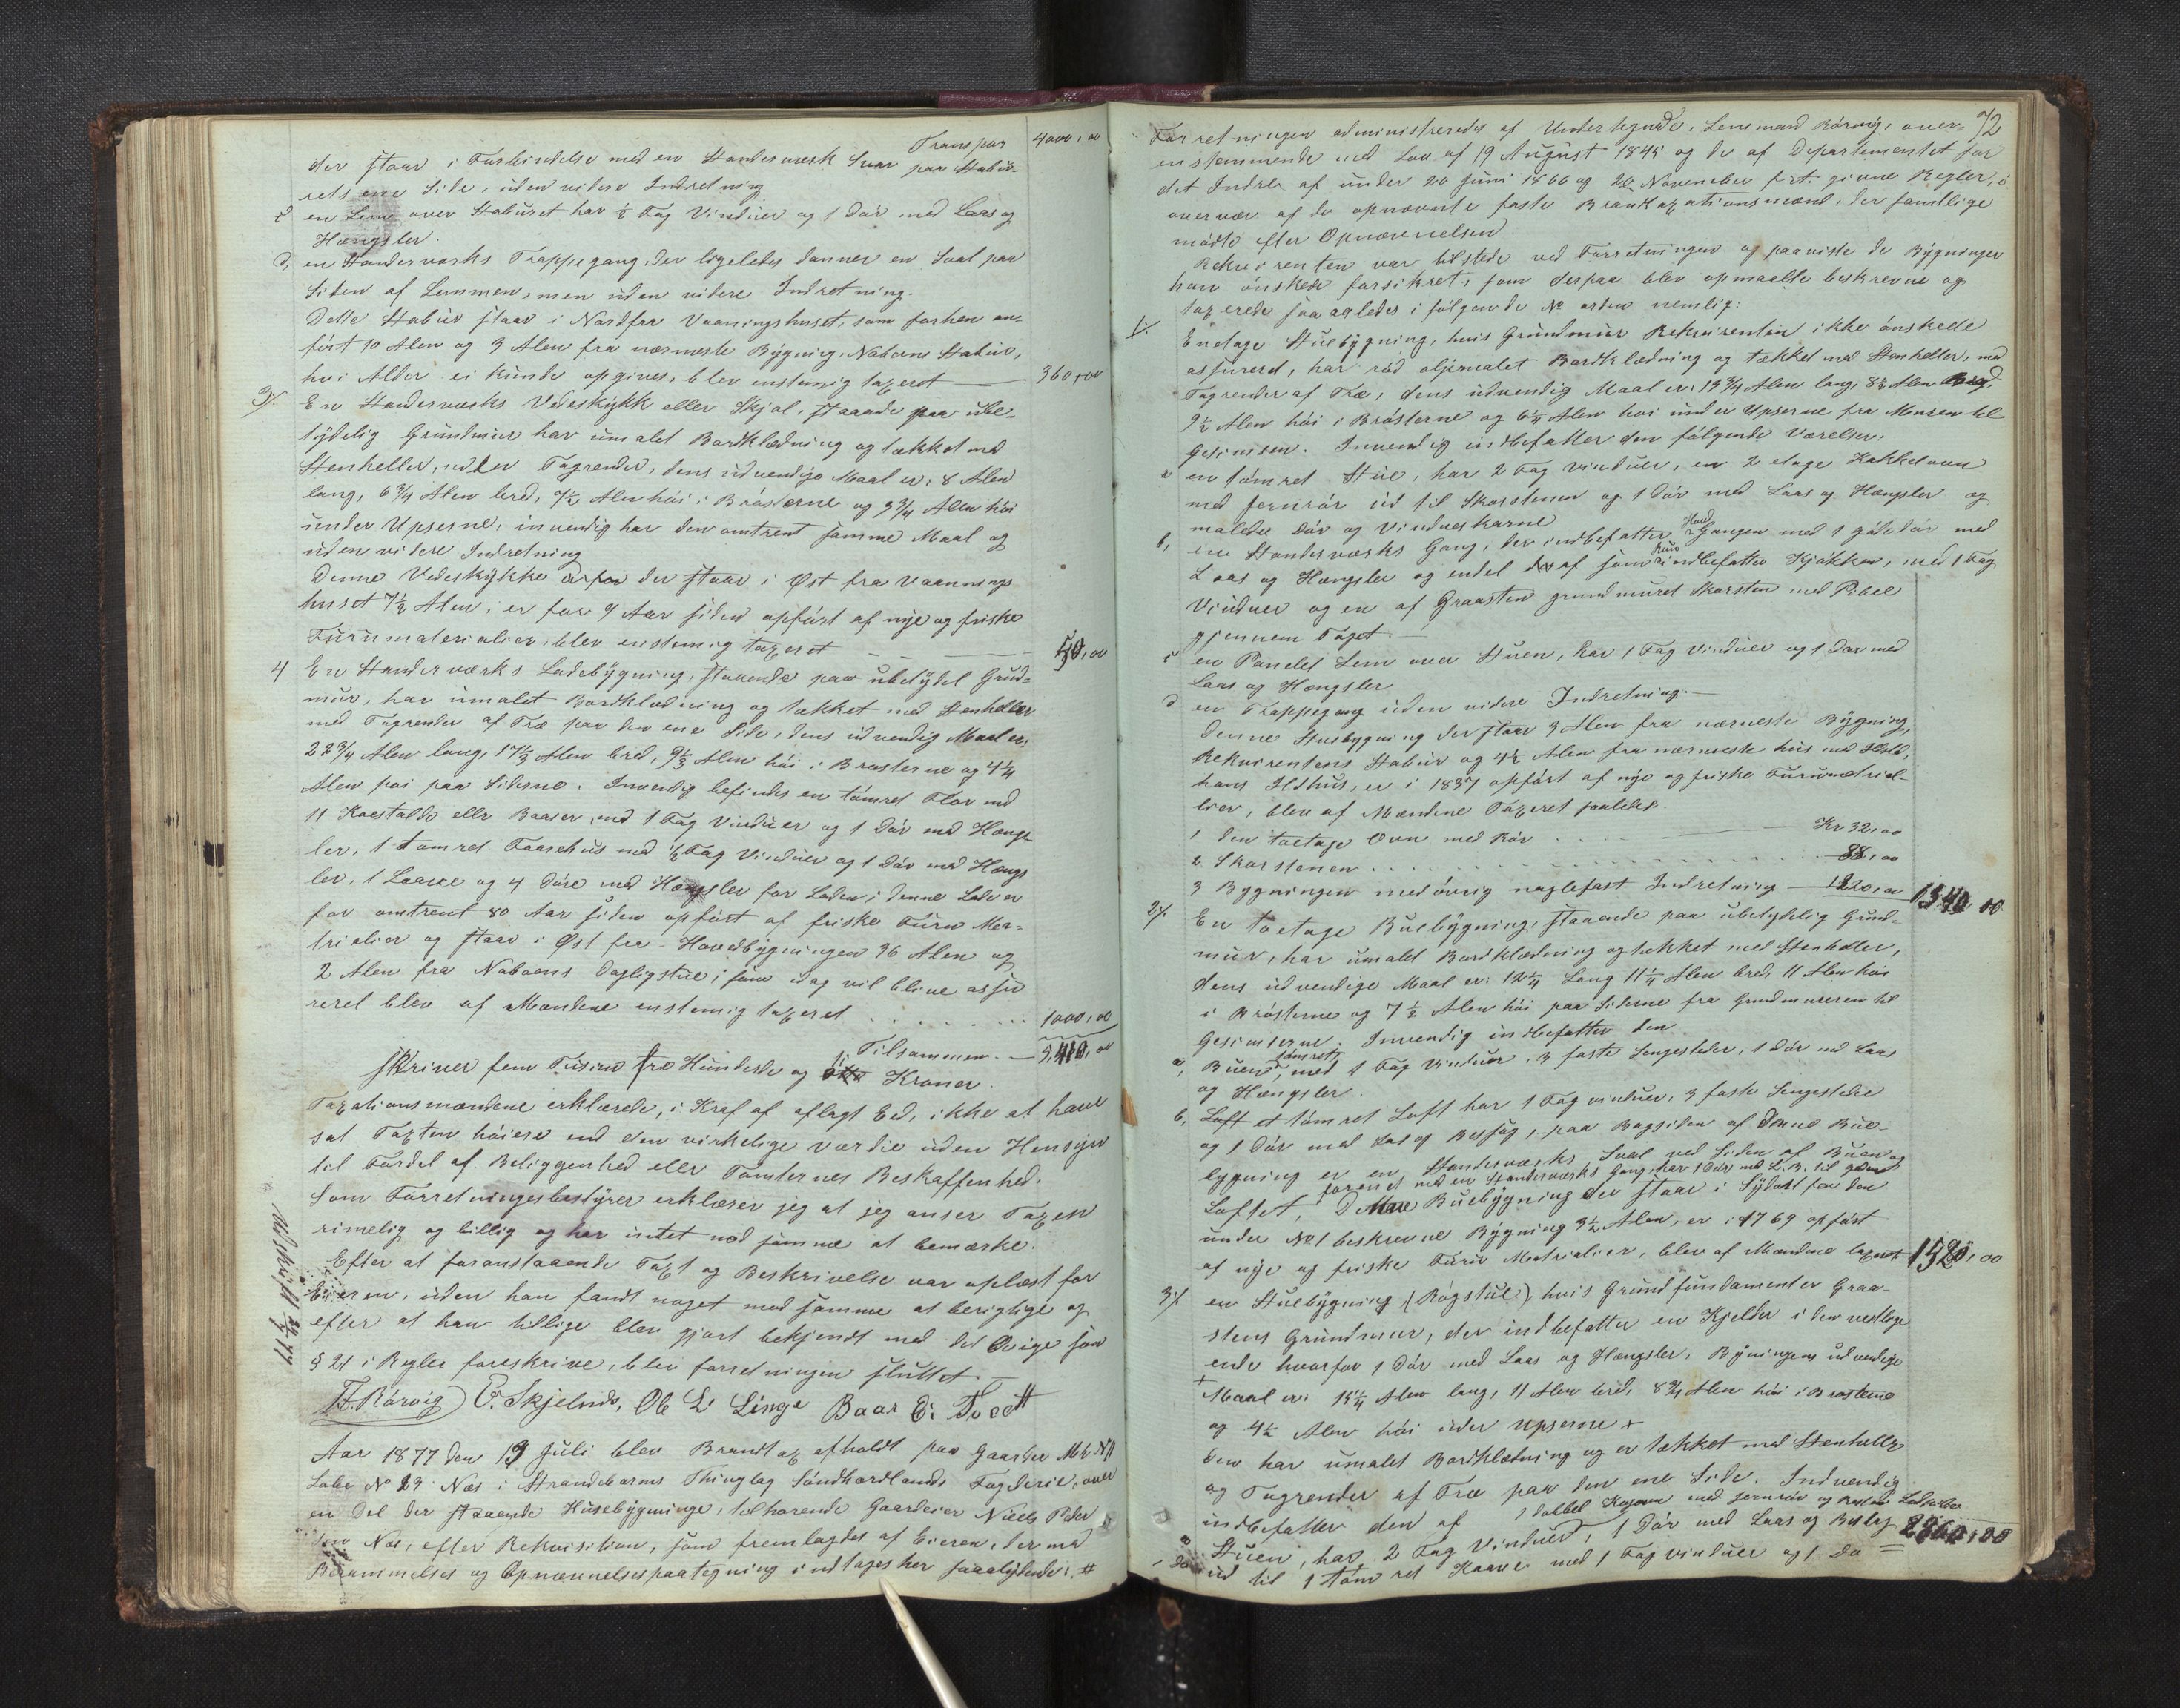 Transpor 4000,00
der staar i Forbindelse med en Standerverk Sval paa Stabu-
rets ene Side, uden videre Indretning
c en Lem over Staburet har ½ Fag Vinduer og 1 Dør med Laas og
Hængsler.
d, en Standerværks Trappegang, der ligeledes danner en Sval paa
Siden af Lemmen, men uden videre Indretning.
Dette Stabur staar i Nord fra Vaaningshuset, som forhen an-
ført 10 Alen og 3 Alen fra nærmeste Bygning, Naboens Stabur,
hvis Alder ei kunde opgives, blev enstemig taxeret — 360,00
3/. En Standerværks Vedeskykke eller Skjol, staaende paa ube-
tydelig Grundmur har umalet Bordklædning og tækket med
Stenheller, uden Tagrender, dens udvendige Maal er: 8 Alen
lang, 6¾ Alen bred, 7½ Alen høi i Brøsterne og 3¾ Alen høi
under Upserne, invendig har den omtrent samme Maal og
uden videre Indretning
Denne Vedeskykke der staar i Øst fra Vaanings
huset 7½ Alen, er for 9 Aar siden opført af nye og friske
Furumaterialier, blev enstemig taxeret — 50,00
4 En Standerværks Ladebygning, staaende paa ubetydel Grund-
mur, har umalet Bordklædning og tækket med Stenheller
med Tagrender af Træ paa den ene Side, dens udvendig Maal er:
22¾ Alen lang, 17½ Alen bred, 9⅓ Alen høi i Brøsterne og 4¼
Alen høi paa Siderne. Invendig befindes en tømret Flor med
11 Koestalde eller Baaser, med 1 Fag Vinduer og 1 Dør med Hængs-
ler, 1 tømret Faarehus med ½ Fag Vinduer og 1 Dør med Hængs
ler, 1 Laave og 4 Døre med Hængsler for Laden; denne Lade er
for omtrent 80 Aar siden opført af friske Furu Mea-
trialier og staar i Øst fra Hovedbygningen 36 Alen og
2 Alen fra Naboens Dagligstue; som idag vil blive assu
reret blev af Mændene enstemig taxeret ........ 1000,00
Tilsammen. — 5,410,00
skriver fem Tusind fire Hundrede og ti Kroner.
Taxationsmændene erklærede, i Kraf af aflagt Eed, ikke at have
sat Taxten høiere end den virkelige Værdie uden Hensyn
til Fordel af Beliggenhed eller Tomternes Beskaffenhed.
Som Forretningsbestyrer erklærer jeg at jeg anser Taxten
rimelig og billig og har intet med samme at bemærke.
Efter at foranstaaende Taxt og Beskrivelse var oplæst for
Eieren, uden han fandt noget med samme at berigtige og
efter at han tillige blev gjort bekjendt med det Øvrige som
§ 21 i Regler foreskrive, blev forretningen sluttet. —
Udskrift
Rørvig E. Skjelnes, Ole L. Linge Baar E. Tvedt
Aar 1877 den 19 Juli blev Brandtax afholdt paa Gaarden Mtr. N
Løbe No 23 Næs i Strandebarms Thinglag Søndhordlands Fogderie, over
en Del der staaende Husebygninge, tilhørende Gaardeier Niels Peder
sen Næs, efter Rekvisition, som fremlagdes af Eieren, der med
Berammelses og Opnævnelsespaategning indtages her saalydende: #
72
Forretningen administreredes af Undertegnede, Lensmand Rørvig, over-
ensstemmende med Lov af 19 August 1845 og de af Departementet for
det Indre af under 20 Juni 1866 og 20 November f. A. givne Regler, i
overvær af de opnævnte faste Brandtaxationsmænd, der samtlige
mødte efter Opnævnelsen.
Rekvirenten var tilstede ved Forretningen og paaviste de Bygninger
han ønskede forsikret, som derpaa blev opmaalte beskrevne og
taxerede saaledes i følgende No orden nemlig:
1. Enetage Stuebygning, hvis Grundmur Rekvirenten ikke ønskede
assureret, har rød oljemalet Bordklædning og tækket med Stenheller, med
Tagrender af Træ, dens udvendig Maal er: 13¾ Alen lang, 8½ Alen bred,
9½ Alen høi i Brøsterne og 6¼ Alen høi under Upserne fra Muren til
Gesimsen. Invendig indbefatter den følgende Værelser,
a en tømret Stue, har 2 Fag Vinduer, en 2 etage Kakkelovn
med Jernrør ud til Skorstenen og 1 Dør med Laas og Hængsler og
malede Dør og Vindueskarne
b, en Standerværks Gang, der indbefatter Gangen med 1 Gadedør med
Laas og Hængsler og endel deraf som indbefatter Kjøkken, med 1 Fag
Vinduer og en af Graasten grundmuret Skorsten med Pibe
gjennem Taget. —
c en Panelet Lem over Stuen, har 1 Fag Vinduer og 1 Dør med
Laas og Hængsler
d en Trappegang uden videre Indretning. —
Denne Stuebygning der staar 3 Alen fra nærmeste Bygning,
Rekvirentens Stabur og 4½ Alen fra nærmeste hus med Ildsted,
hans Ildhus, er i 1837 opført af nye og friske Furumatrial-
lier, blev af Mændene Taxeret saaledes.
1 den toetage Ovn med Rør — Kr 32,00
2 Skorstenen ........ 88,00
3 Bygningen med øvrig naglefast Indretning — 1220,00 1340 00
2/. En toetage Buebygning, staaende paa ubetydelig Grund-
mur, har umalet Bordklædning og tækket med Stenheller,
dens udvendige Maal er: 12¼ Lang 11¼ Alen bred, 11 Alen høi
i Brøsterne og 7½ Alen høi paa Siderne fra Grundmuren til
Gesimserne. Invendig indbefatter den
a, Buen, tømret, med 1 Fag Vinduer, 3 faste Sengesteder, 1 Dør med Laas
og Hængsler.
b, Loft et tømret Loft har 1 Fag vinduer, 3 faste Sengestedre
og 1 Dør med Laas og Beslag, paa Bagsiden af denne Bue-
bygning er en Standerværks Sval ved Siden af Buen og
forenet med en Standerværks Gang, har 1 Dør med L. B. til
Loftet, Denne Buebygning der staar i Sydøst fra den
under No 1 beskrevne Bygning 3½ Alen, er i 1769 opført
af nye og friske Furu Matrialier, blev af Mændene taxeret 1520,00
3/. en Stuebygning (Røgstue), hvis Grundfundament er Graa-
stens Grundmur, der indbefatter en Kjelder i den vestlige
ende hvorfor 1 Dør med Laas og Hængsler. Bygningens udvendige
Maal er: 15¼ Alen lang, 11 Alen bred, 8¾ Alen høi i Brøsterne
og 4½ Alen høi under Upserne +
den har umalet Bordklædning og er tækket med Stenheller
og Tagrender af Træ paa den ene Side. Indvendig
indbefatter den af 1 dobbel Kogeovn med Jernrør og
a Stuen, har 2 Fag Vinduer, 1 Dør med Laas og Beslag 2860,00
ud til 1 tømret Kaave med 1 Fag vinduer og 1 Dø =